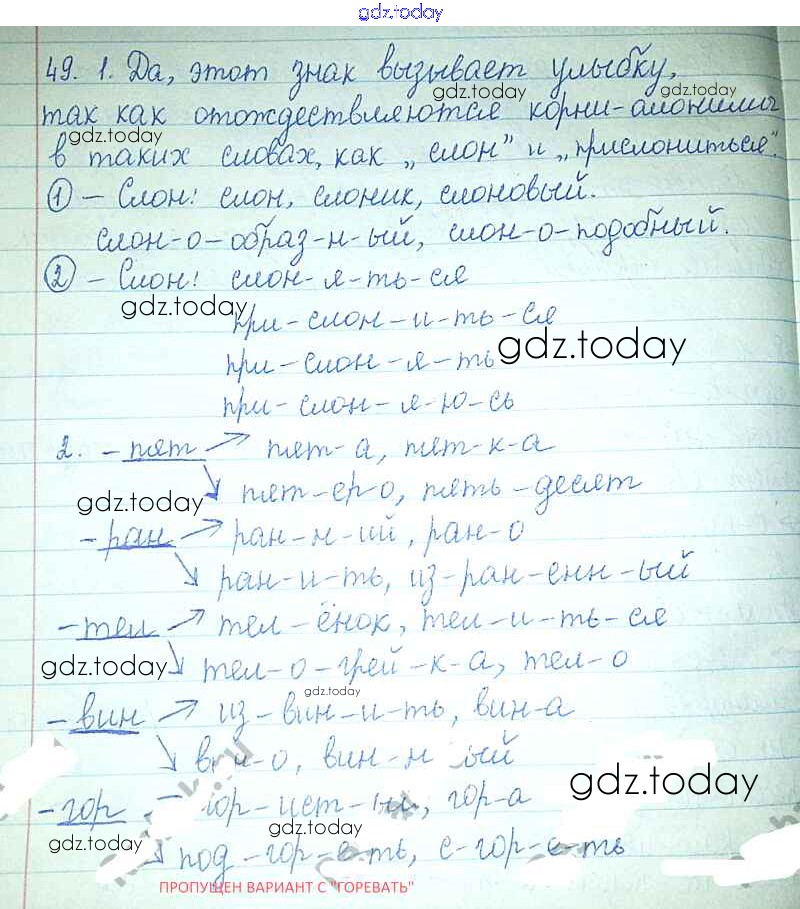 gdz.today
49. 1. Да, этот знак вызывает улыбку,
gdz.today gdz.today
так как отождествляются корни-омонимы
gdz.today
в таких словах, как „слон" и „прислониться".
① – Слон! слон, слоник, слоновый.
слон-о-образ-н-ый, слон-о-подобный.
② – Слон! слон-я-ть-ся
gdz.today
при-слон-и-ть-ся
при-слон-я-ть gdz.today
при-слон-я-ю-сь
2. -пят → пят-а, пят-к-а
gdz.today
пят-ер-о, пять-десят
-ран → ран-н-ий, ран-о
ран-и-ть, из-ран-енн-ый
-тел → тел-ёнок, тел-и-ть-ся
gdz.today
тел-о-грей-к-а, тел-о
gdz.today
-вин → из-вин-и-ть, вин-а
вин-о, вин-н-ый
gdz.today
-гор гор-ист-ый, гор-а
gdz.today gdz.today
под-гор-е-ть, с-гор-е-ть
ПРОПУЩЕН ВАРИАНТ С "ГОРЕВАТЬ"